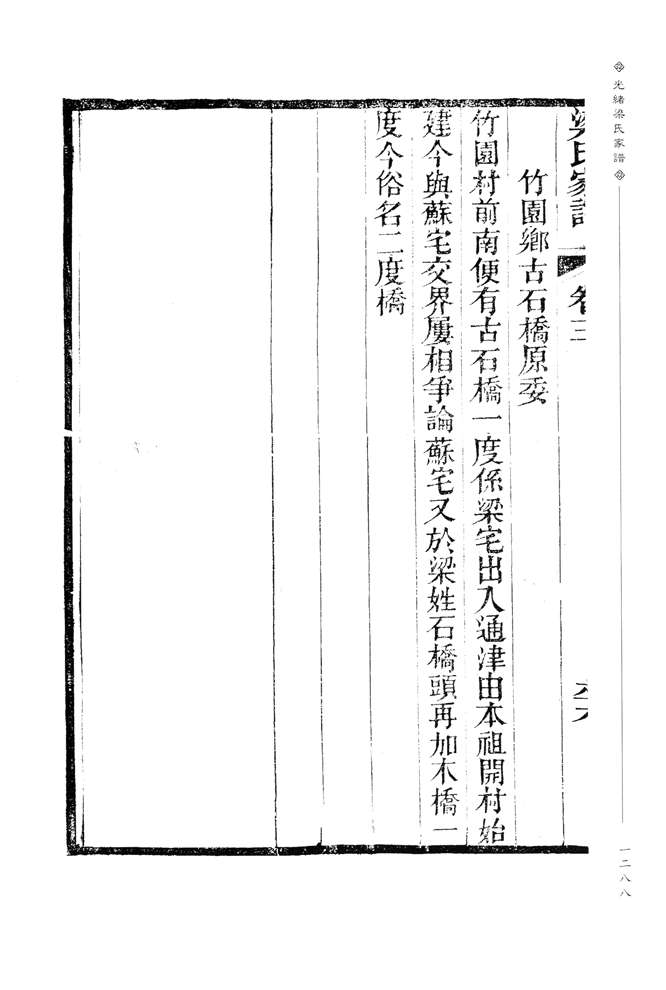 光緒梁氏家譜
一二八八
梁氏家譜 卷三
竹園鄉古石橋原委
竹園村前南便有古石橋一度係梁宅出入通津由本祖開村始
建今與蘇宅交界屢相爭論蘇宅又於梁姓石橋頭再加木橋一
度今俗名二度橋